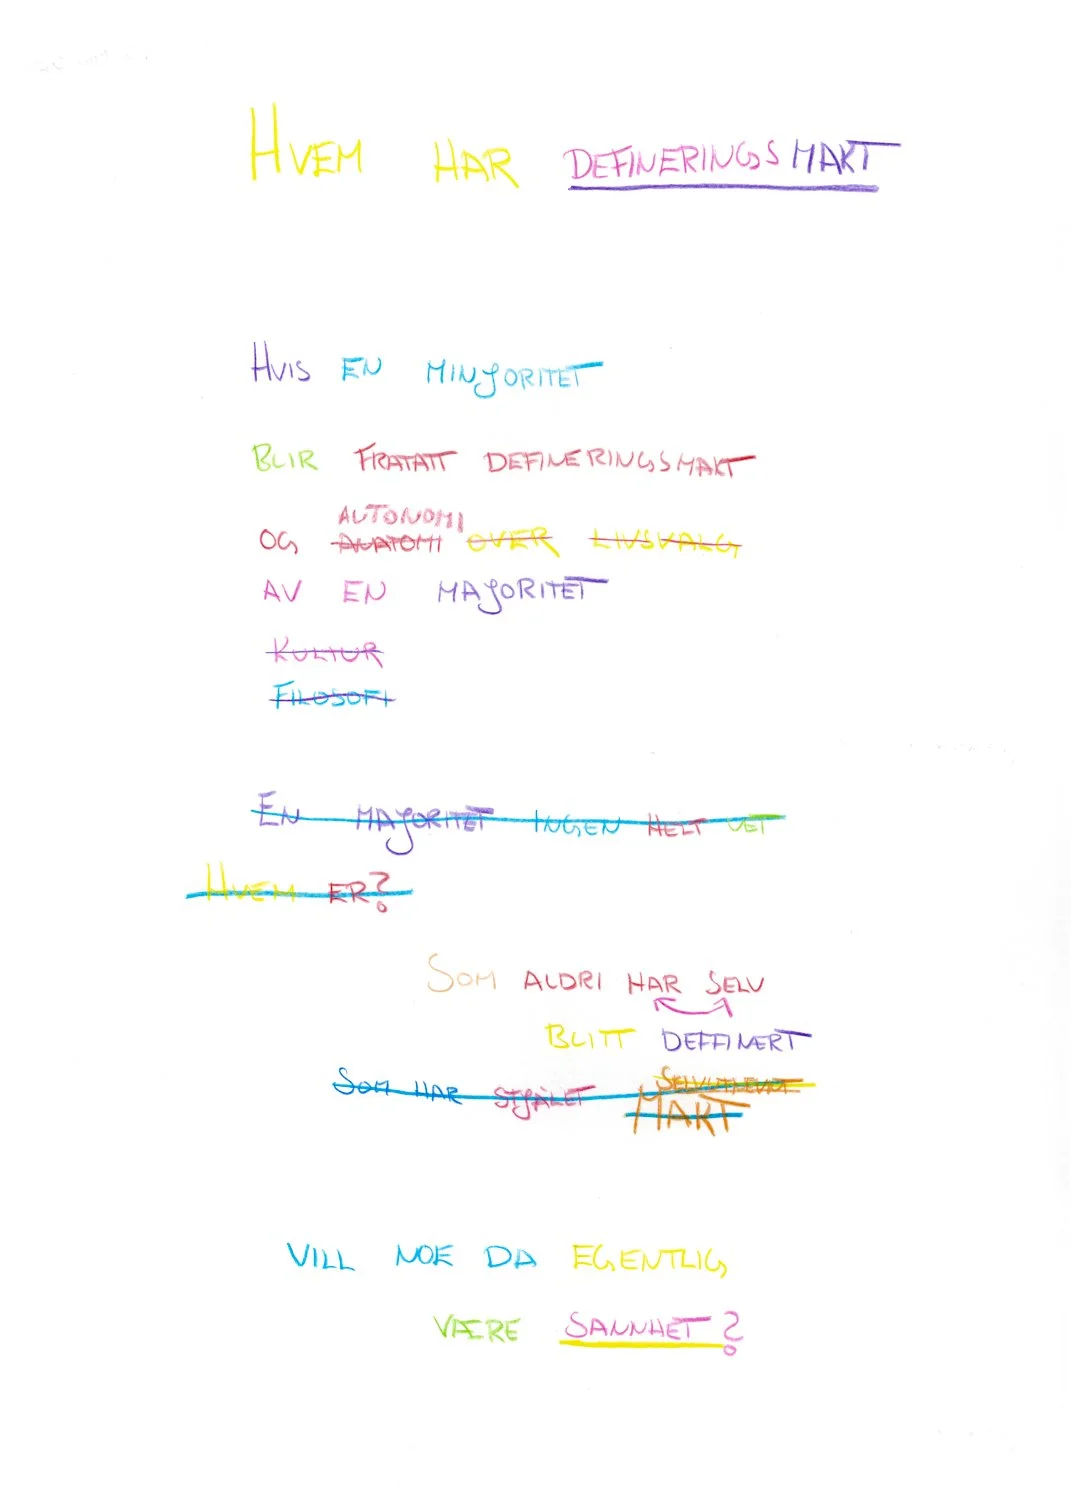 HVEM HAR DEFINERINGSMAKT
HVIS EN MINJORITET
BLIR FRATATT DEFINERINGSMAKT
AUTONOMI
OG ANATOMI OVER LIVSVALG
AV EN MAJORITET
KULTUR
FILOSOFI
EN MAJORITET INGEN HELT VET
HVEM ER?
SOM ALDRI HAR SELV
BLITT DEFFINERT
SOM HAR STJÅLET
MAKT
VILL NOE DA EGENTLIG
VÆRE SANNHET?